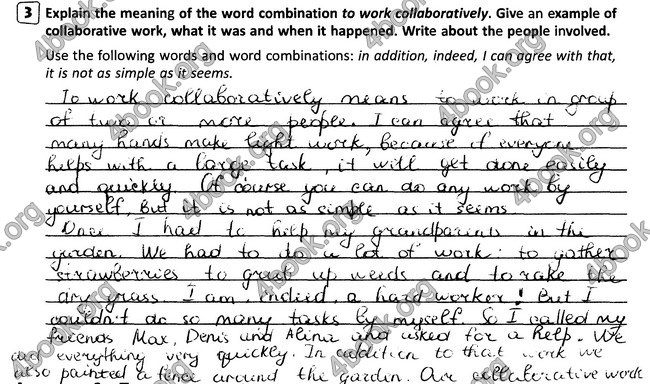 3 Explain the meaning of the word combination to work collaboratively. Give an example of
collaborative work, what it was and when it happened. Write about the people involved.
Use the following words and word combinations: in addition, indeed, I can agree with that,
it is not as simple as it seems.
To work collaboratively means to work in group
of two or more people. I can agree that
many hands make light work, because if everyone
helps with a large task, it will get done easily
and quickly. Of course you can do any work by
yourself, But it is not as simple as it seems.
Once I had to help my grandparents in the
garden. We had to do a lot of work: to gather
strawberries to grub up weeds and to rake the
dry grass. I am, indeed, a hard worker! But I
couldn't do so many tasks by myself. So I called my
friends Max, Denis and Alina and asked for a help. We
did everything very quickly. In addition to that work we
also painted a fence around the garden. Our collaborative work
4book.org
4book.org
4book.org
4book.org
4book.org
4book.org
4book.org